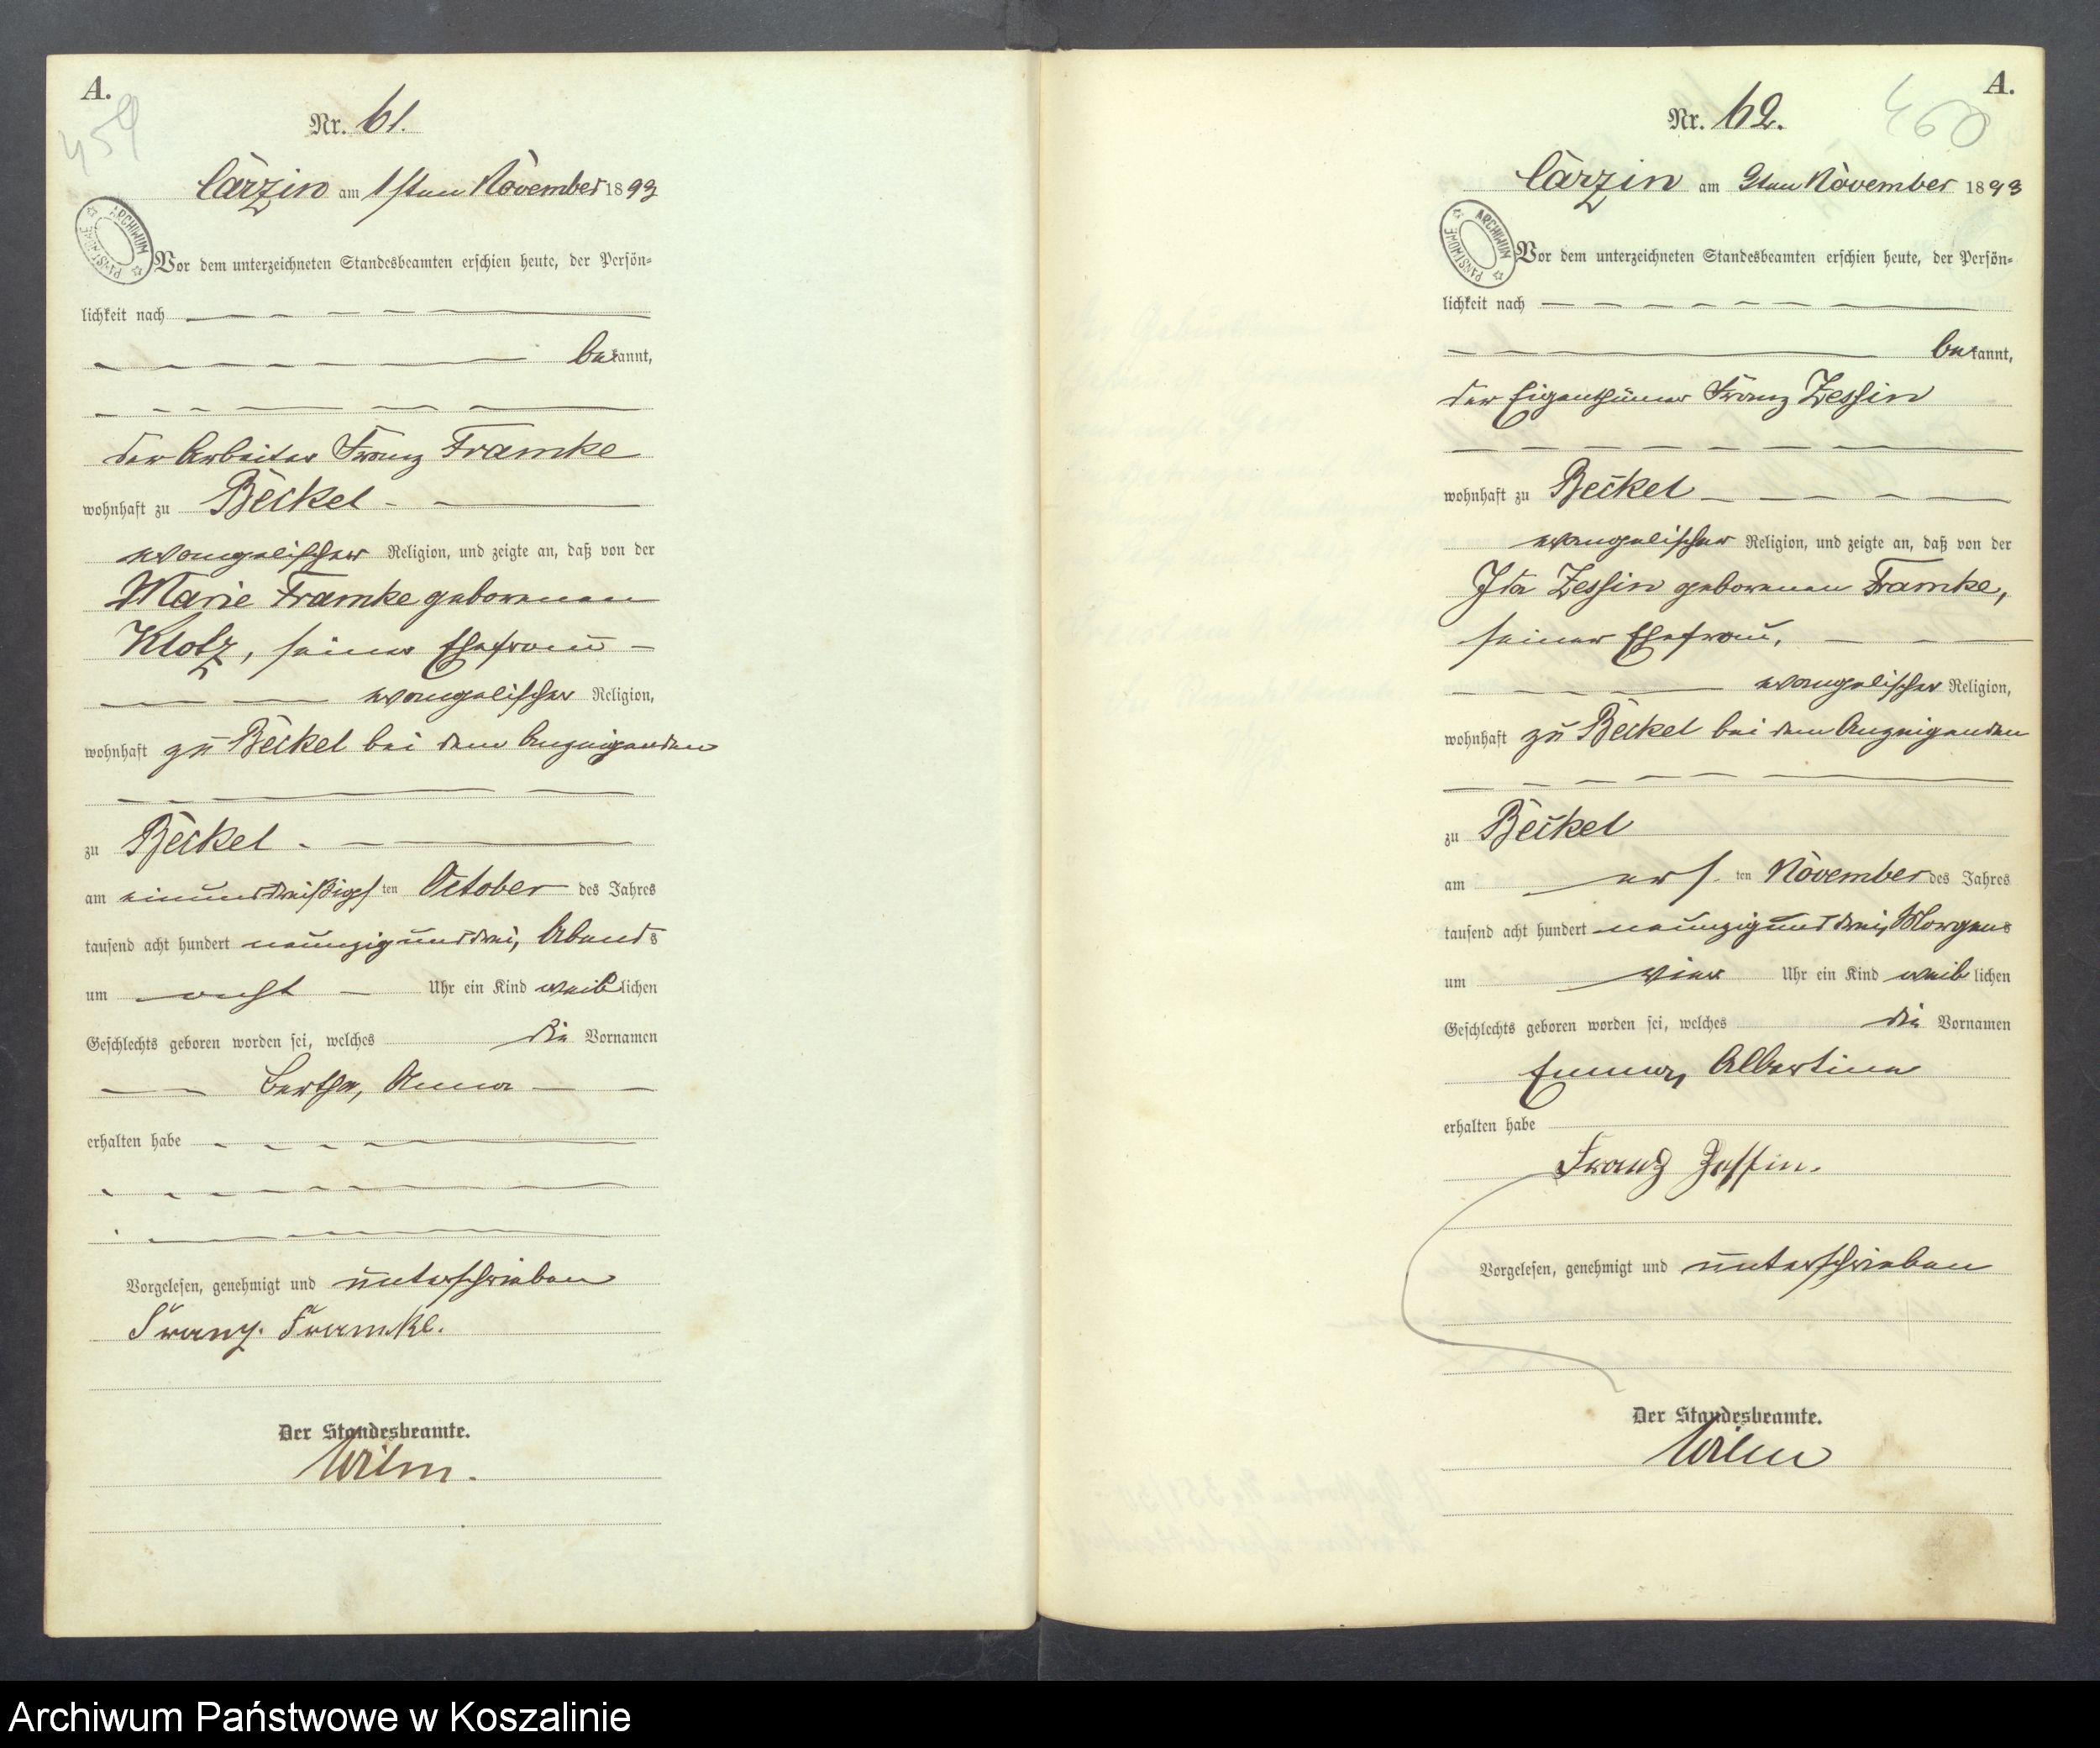 A.
459
Nr. 61.
Carzin am 1sten November 1893
ARCHIWUM PAŃSTWOWE
Vor dem unterzeichneten Standesbeamten erschien heute, der Persön-
lichkeit nach
bekannt,
der Arbeiter Franz Framke
wohnhaft zu Beckel
evangelischer Religion, und zeigte an, daß von der
Marie Framke geborenen
Klotz, seiner Ehefrau
evangelischer Religion,
wohnhaft zu Beckel bei dem Anzeigenden
zu Beckel
am einunddreißigsten October des Jahres
tausend acht hundert neunzig und drei, Abends
um acht Uhr ein Kind weiblichen
Geschlechts geboren worden sei, welches die Vornamen
Bertha, Anna
erhalten habe
Vorgelesen, genehmigt und unterschrieben
Franz. Framke.
Der Standesbeamte.
Wilm.
A.
460
Nr. 62.
Carzin am 2ten November 1893
ARCHIWUM PAŃSTWOWE
Vor dem unterzeichneten Standesbeamten erschien heute, der Persön-
lichkeit nach
bekannt,
der Eigenthümer Franz Zessin
wohnhaft zu Beckel
evangelischer Religion, und zeigte an, daß von der
Ida Zessin geborenen Framke,
seiner Ehefrau,
evangelischer Religion,
wohnhaft zu Beckel bei dem Anzeigenden
zu Beckel
am ersten November des Jahres
tausend acht hundert neunzig und drei, Morgens
um vier Uhr ein Kind weiblichen
Geschlechts geboren worden sei, welches die Vornamen
Emma, Albertine
erhalten habe
Franz Zessin.
Vorgelesen, genehmigt und unterschrieben
Der Standesbeamte.
Wilm
Archiwum Państwowe w Koszalinie